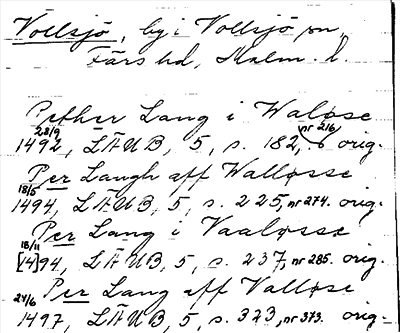 Vollsjö, by i Vollsjö sn,
Färs hd, Malm. l.
Pether Lang i Waløse
28/9 1492, LÄUB, 5, s. 182, nr 216 orig.
Per Laugh aff Walløsse
18/5 1494, LÄUB, 5, s. 225, nr 274. orig.
Per Lang i Vaaløsse
18/11 [14]94, LÄUB, 5, s. 237, nr 285. orig.
Per Lang aff Valløse
24/6 1497, LÄUB, 5, s. 323, nr 373. orig.